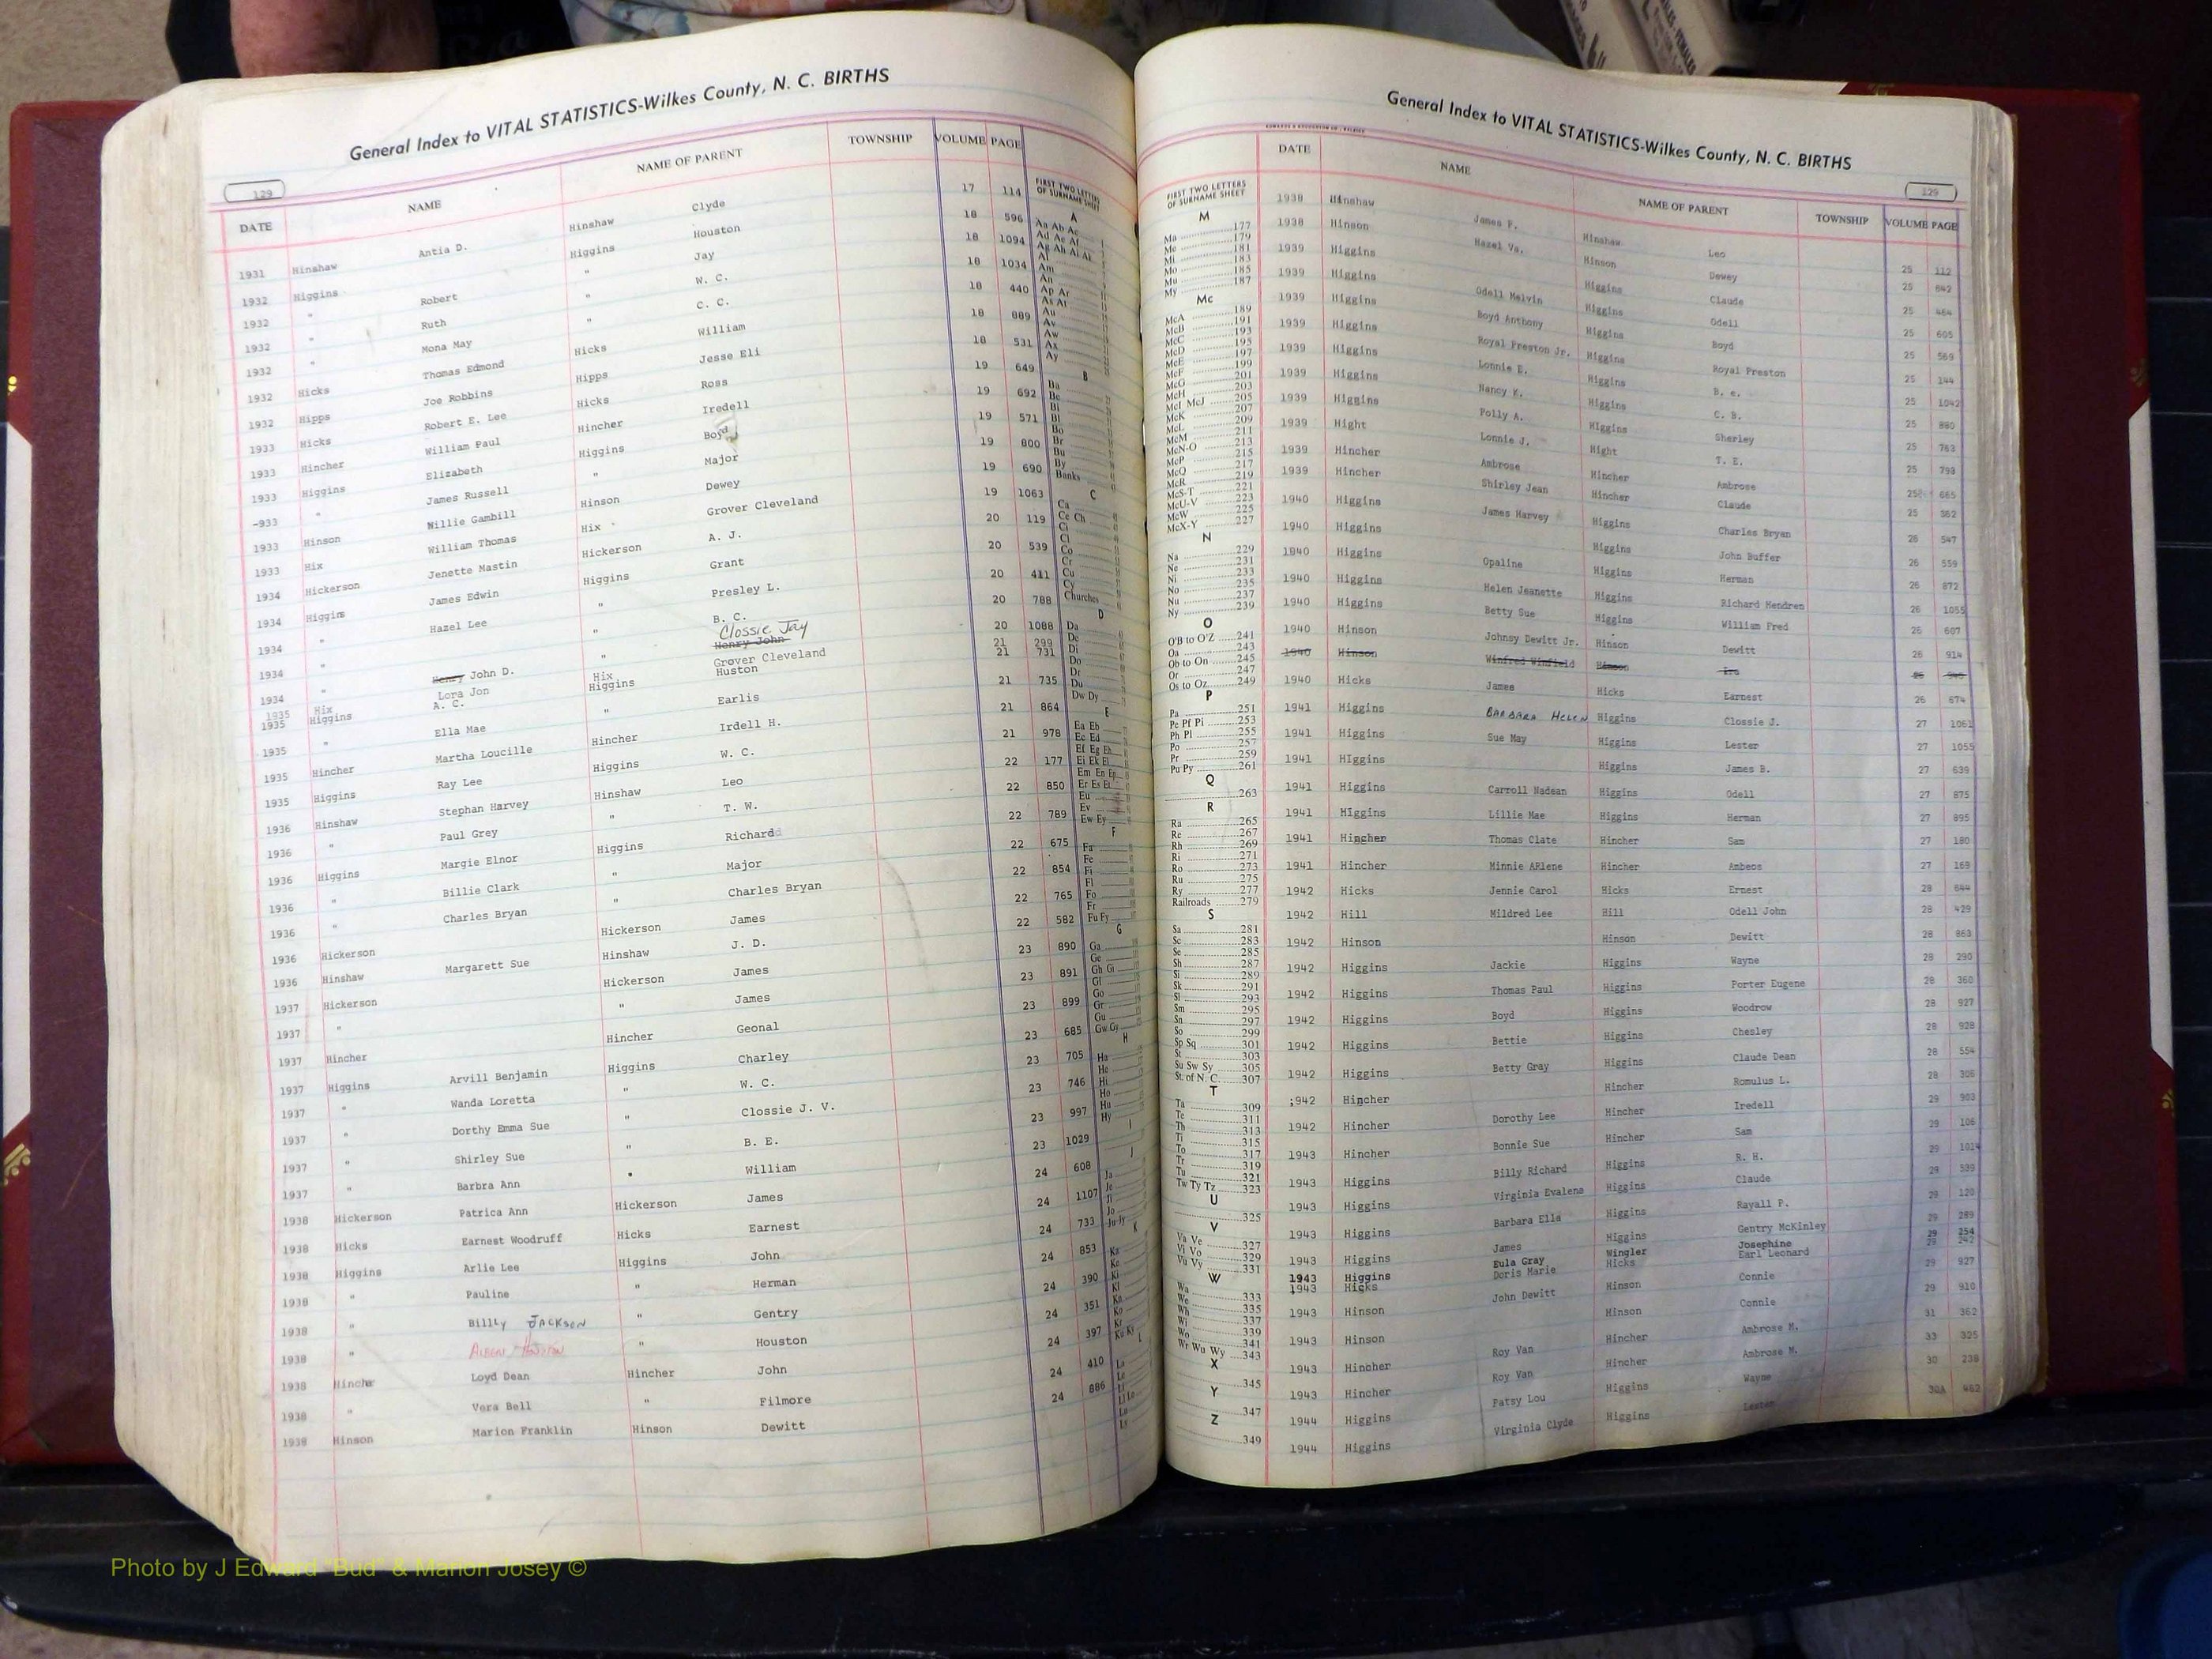 General Index to VITAL STATISTICS-Wilkes County, N. C. BIRTHS
129
DATE NAME NAME OF PARENT TOWNSHIP VOLUME PAGE
1931 Hinshaw Antia D. Hinshaw Clyde 17 114
1932 Higgins Higgins Houston 18 596
1932 " Robert " Jay 18 1094
1932 " Ruth " W. C. 18 1034
1932 " Mona May " C. C. 18 440
1932 Hicks Thomas Edmond Hicks William 18 889
1932 Hipps Joe Robbins Hipps Jesse Eli 18 531
1933 Hicks Robert E. Lee Hicks Ross 19 649
1933 Hincher William Paul Hincher Iredell 19 692
1933 Higgins Elizabeth Higgins Boyd 19 571
-933 " James Russell " Major 19 800
1933 Hinson Willie Gambill Hinson Dewey 19 690
1933 Hix William Thomas Hix Grover Cleveland 19 1063
1934 Hickerson Jenette Mastin Hickerson A. J. 20 119
1934 Higgins James Edwin Higgins Grant 20 539
1934 " Hazel Lee " Presley L. 20 411
1934 " " B. C. 20 788
Clossie Jay
1934 " Henry John D. " Henry John 20 1088
1935 Hix Lora Jon Hix Grover Cleveland 21 299
1935 Higgins A. C. Higgins Huston 21 731
1935 " Ella Mae " Earlis 21 735
1935 Hincher Martha Loucille Hincher Irdell H. 21 864
1935 Higgins Ray Lee Higgins W. C. 21 978
1936 Hinshaw Stephan Harvey Hinshaw Leo 22 177
1936 " Paul Grey " T. W. 22 850
1936 Higgins Margie Elnor Higgins Richard 22 789
1936 " Billie Clark " Major 22 675
1936 " Charles Bryan " Charles Bryan 22 854
1936 Hickerson Hickerson James 22 765
1936 Hinshaw Margarett Sue Hinshaw J. D. 22 582
1937 Hickerson Hickerson James 23 890
1937 " " James 23 891
1937 Hincher Hincher Geonal 23 899
1937 Higgins Arvill Benjamin Higgins Charley 23 685
1937 " Wanda Loretta " W. C. 23 705
1937 " Dorthy Emma Sue " Clossie J. V. 23 746
1937 " Shirley Sue " B. E. 23 997
1937 " Barbra Ann " William 23 1029
1938 Hickerson Patrica Ann Hickerson James 24 608
1938 Hicks Earnest Woodruff Hicks Earnest 24 1107
1938 Higgins Arlie Lee Higgins John 24 733
1938 " Pauline " Herman 24 853
1938 " Billy JACKSON " Gentry 24 390
1938 " " Houston 24 351
1938 Hinchr Loyd Dean Hincher John 24 397
1938 " Vera Bell " Filmore 24 410
1938 Hinson Marion Franklin Hinson Dewitt 24 886
FIRST TWO LETTERS OF SURNAME SHEET
A
Aa Ab Ac
Ad Ae Af
Ag Ah Ai Ak
Al
Am
An
Ap Ar
As At
Au
Av
Aw
Ax
Ay
B
Ba
Be
Bi
Bl
Bo
Br
Bu
By
Banks
C
Ca
Ce Ch
Ci
Cl
Co
Cr
Cu
Cy
Churches
D
Da
De
Di
Do
Dr
Du
Dw Dy
E
Ea Eb
Ec Ed
Ef Eg Eh
Ei Ek El
Em En Ep
Er Es Et
Eu
Ev
Ew Ey
F
Fa
Fe
Fi
Fl
Fo
Fr
Fu Fy
G
Ga
Ge
Gh Gi
Gl
Go
Gr
Gu
Gw Gy
H
Ha
He
Hi
Ho
Hu
Hy
I
J
Ja
Je
Ji
Jo
Ju Jy
K
Ka
Ke
Ki
Kl
Kn
Ko
Kr
Ku Ky
L
La
Le
Li
Ll Lo
Lu
Ly
General Index to VITAL STATISTICS-Wilkes County, N. C. BIRTHS
129
FIRST TWO LETTERS OF SURNAME SHEET
M
Ma 177
Me 179
Mi 181
Mo 183
Mu 185
My 187
Mc
McA 189
McB 191
McC 193
McD 195
McE 197
McF 199
McG 201
McH 203
McI McJ 205
McK 207
McL 209
McM 211
McN-O 213
McP 215
McQ 217
McR 219
McS-T 221
McU-V 223
McW 225
McX-Y 227
N
Na 229
Ne 231
Ni 233
No 235
Nu 237
Ny 239
O
O'B to O'Z 241
Oa 243
Ob to On 245
Or 247
Os to Oz 249
P
Pa 251
Pe Pf Pi 253
Ph Pl 255
Po 257
Pr 259
Pu Py 261
Q
263
R
Ra 265
Re 267
Rh 269
Ri 271
Ro 273
Ru 275
Ry 277
Railroads 279
S
Sa 281
Sc 283
Se 285
Sh 287
Si 289
Sk 291
Sl 293
Sm 295
Sn 297
So 299
Sp Sq 301
St 303
Su Sw Sy 305
St. of N. C. 307
T
Ta 309
Te 311
Th 313
Ti 315
To 317
Tr 319
Tu 321
Tw Ty Tz 323
U
325
V
Va Ve 327
Vi Vo 329
Vu Vy 331
W
Wa 333
We 335
Wh 337
Wi 339
Wo 341
Wr Wu Wy 343
X
345
Y
347
Z
349
DATE NAME NAME OF PARENT TOWNSHIP VOLUME PAGE
1938 Hinshaw James F. Hinshaw Leo 25 112
1938 Hinson Hazel Va. Hinson Dewey 25 642
1939 Higgins Higgins Claude 25 464
1939 Higgins Odell Melvin Higgins Odell 25 605
1939 Higgins Boyd Anthony Higgins Boyd 25 569
1939 Higgins Royal Preston Jr. Higgins Royal Preston 25 144
1939 Higgins Lonnie E. Higgins B. e. 25 1042
1939 Higgins Nancy K. Higgins C. B. 25 880
1939 Higgins Polly A. Higgins Sherley 25 763
1939 Hight Lonnie J. Hight T. E. 25 798
1939 Hincher Ambrose Hincher Ambrose 25 665
1939 Hincher Shirley Jean Hincher Claude 25 362
1940 Higgins James Harvey Higgins Charles Bryan 26 547
1940 Higgins Higgins John Buffer 26 559
1940 Higgins Opaline Higgins Herman 26 872
1940 Higgins Helen Jeanette Higgins Richard Hendren 26 1055
1940 Higgins Betty Sue Higgins William Fred 26 607
1940 Hinson Johnsy Dewitt Jr. Hinson Dewitt 26 914
1940 Hinson Winfred Winfield Hinson Ira 26 945
1940 Hicks James Hicks Earnest 26 674
1941 Higgins BARBARA HELEN Higgins Clossie J. 27 1061
1941 Higgins Sue May Higgins Lester 27 1055
1941 Higgins Higgins James B. 27 639
1941 Higgins Carroll Nadean Higgins Odell 27 875
1941 Higgins Lillie Mae Higgins Herman 27 895
1941 Hincher Thomas Clate Hincher Sam 27 180
1941 Hincher Minnie ARlene Hincher Ambeos 27 169
1942 Hicks Jennie Carol Hicks Ernest 28 644
1942 Hill Mildred Lee Hill Odell John 28 429
1942 Hinson Hinson Dewitt 28 863
1942 Higgins Jackie Higgins Wayne 28 290
1942 Higgins Thomas Paul Higgins Porter Eugene 28 360
1942 Higgins Boyd Higgins Woodrow 28 927
1942 Higgins Bettie Higgins Chesley 28 928
1942 Higgins Betty Gray Higgins Claude Dean 28 554
;942 Hincher Hincher Romulus L. 28 306
1942 Hincher Dorothy Lee Hincher Iredell 29 903
1943 Hincher Bonnie Sue Hincher Sam 29 106
1943 Higgins Billy Richard Higgins R. H. 29 1014
1943 Higgins Virginia Evalene Higgins Claude 29 539
1943 Higgins Barbara Ella Higgins Rayall P. 29 120
1943 Higgins James Higgins Gentry McKinley 29 289
1943 Higgins Eula Gray Wingler Josephine 29 254
1943 Hicks Doris Marie Hicks Earl Leonard 29 242
1943 Hinson John Dewitt Hinson Connie 29 927
1943 Hinson Hinson Connie 29 910
1943 Hincher Roy Van Hincher Ambrose M. 31 362
1943 Hincher Roy Van Hincher Ambrose M. 33 325
1944 Higgins Patsy Lou Higgins Wayne 30 238
1944 Higgins Virginia Clyde Higgins Lester 30A 462
Photo by J Edward "Bud" & Marion Josey ©